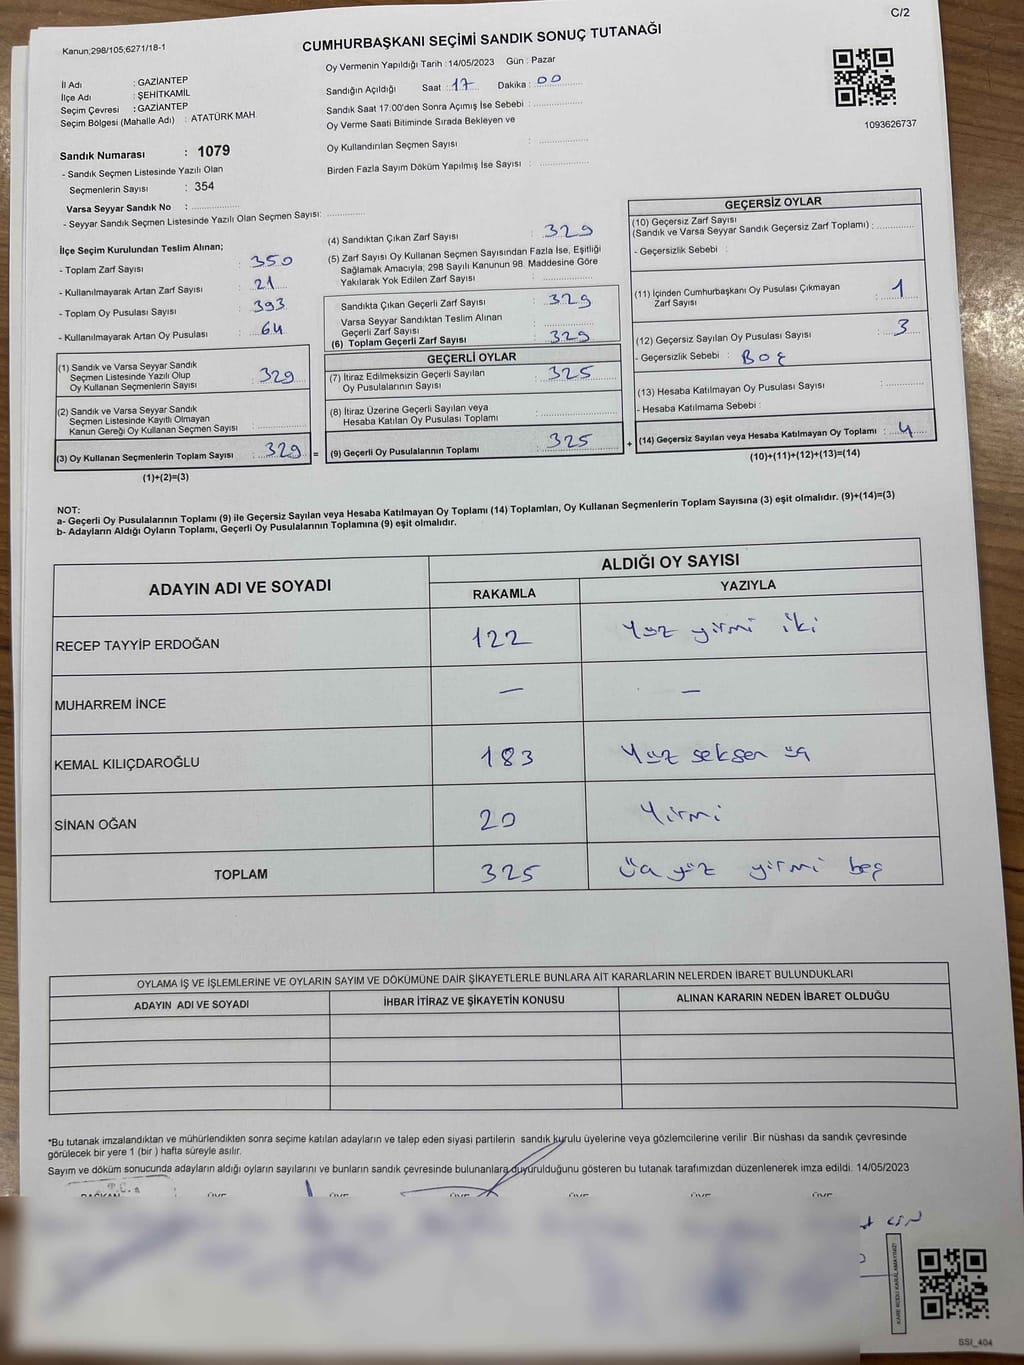 C/2
Kanun;298/105;6271/18-1
CUMHURBAŞKANI SEÇİMİ SANDIK SONUÇ TUTANAĞI
İl Adı : GAZİANTEP
İlçe Adı : ŞEHİTKAMİL
Seçim Çevresi : GAZİANTEP
Seçim Bölgesi (Mahalle Adı) : ATATÜRK MAH.
Oy Vermenin Yapıldığı Tarih : 14/05/2023 Gün : Pazar
Sandığın Açıldığı Saat : 17 Dakika : 00
Sandık Saat 17:00'den Sonra Açımış İse Sebebi :
Oy Verme Saati Bitiminde Sırada Bekleyen ve
Oy Kullandırılan Seçmen Sayısı :
Birden Fazla Sayım Döküm Yapılmış İse Sayısı :
1093626737
Sandık Numarası : 1079
- Sandık Seçmen Listesinde Yazılı Olan
Seçmenlerin Sayısı : 354
Varsa Seyyar Sandık No :
- Seyyar Sandık Seçmen Listesinde Yazılı Olan Seçmen Sayısı:
İlçe Seçim Kurulundan Teslim Alınan;
- Toplam Zarf Sayısı : 350
- Kullanılmayarak Artan Zarf Sayısı : 21
- Toplam Oy Pusulası Sayısı : 393
- Kullanılmayarak Artan Oy Pusulası : 64
(1) Sandık ve Varsa Seyyar Sandık
Seçmen Listesinde Yazılı Olup
Oy Kullanan Seçmenlerin Sayısı : 329
(2) Sandık ve Varsa Seyyar Sandık
Seçmen Listesinde Kayıtlı Olmayan
Kanun Gereği Oy Kullanan Seçmen Sayısı :
(3) Oy Kullanan Seçmenlerin Toplam Sayısı : 329 =
(1)+(2)=(3)
(4) Sandıktan Çıkan Zarf Sayısı : 329
(5) Zarf Sayısı Oy Kullanan Seçmen Sayısından Fazla İse, Eşitliği
Sağlamak Amacıyla; 298 Sayılı Kanunun 98. Maddesine Göre
Yakılarak Yok Edilen Zarf Sayısı :
Sandıkta Çıkan Geçerli Zarf Sayısı : 329
Varsa Seyyar Sandıktan Teslim Alınan
Geçerli Zarf Sayısı :
(6) Toplam Geçerli Zarf Sayısı : 329
GEÇERLİ OYLAR
(7) İtiraz Edilmeksizin Geçerli Sayılan
Oy Pusulalarının Sayısı : 325
(8) İtiraz Üzerine Geçerli Sayılan veya
Hesaba Katılan Oy Pusulası Toplamı :
(9) Geçerli Oy Pusulalarının Toplamı : 325 +
GEÇERSİZ OYLAR
(10) Geçersiz Zarf Sayısı
(Sandık ve Varsa Seyyar Sandık Geçersiz Zarf Toplamı) :
- Geçersizlik Sebebi :
(11) İçinden Cumhurbaşkanı Oy Pusulası Çıkmayan
Zarf Sayısı : 1
(12) Geçersiz Sayılan Oy Pusulası Sayısı : 3
- Geçersizlik Sebebi : Boş
(13) Hesaba Katılmayan Oy Pusulası Sayısı :
- Hesaba Katılmama Sebebi :
(14) Geçersiz Sayılan veya Hesaba Katılmayan Oy Toplamı : 4
(10)+(11)+(12)+(13)=(14)
NOT:
a- Geçerli Oy Pusulalarının Toplamı (9) ile Geçersiz Sayılan veya Hesaba Katılmayan Oy Toplamı (14) Toplamları, Oy Kullanan Seçmenlerin Toplam Sayısına (3) eşit olmalıdır. (9)+(14)=(3)
b- Adayların Aldığı Oyların Toplamı, Geçerli Oy Pusulalarının Toplamına (9) eşit olmalıdır.
ADAYIN ADI VE SOYADI ALDIĞI OY SAYISI
RAKAMLA YAZIYLA
RECEP TAYYİP ERDOĞAN 122 Yüz yirmi iki
MUHARREM İNCE — —
KEMAL KILIÇDAROĞLU 183 Yüz seksen üç
SİNAN OĞAN 20 Yirmi
TOPLAM 325 üç yüz yirmi beş
OYLAMA İŞ VE İŞLEMLERİNE VE OYLARIN SAYIM VE DÖKÜMÜNE DAİR ŞİKAYETLERLE BUNLARA AİT KARARLARIN NELERDEN İBARET BULUNDUKLARI
ADAYIN ADI VE SOYADI İHBAR İTİRAZ VE ŞİKAYETİN KONUSU ALINAN KARARIN NEDEN İBARET OLDUĞU
*Bu tutanak imzalandıktan ve mühürlendikten sonra seçime katılan adayların ve talep eden siyasi partilerin sandık kurulu üyelerine veya gözlemcilerine verilir .Bir nüshası da sandık çevresinde
görülecek bir yere 1 (bir ) hafta süreyle asılır.
Sayım ve döküm sonucunda adayların aldığı oyların sayılarını ve bunların sandık çevresinde bulunanlara duyurulduğunu gösteren bu tutanak tarafımızdan düzenlenerek imza edildi. 14/05/2023
T.C.
BAŞKAN ÜYE ÜYE ÜYE ÜYE ÜYE ÜYE
SSI_404